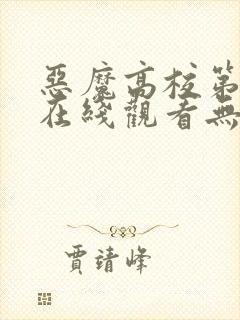 惡魔高校第
在綫觀看無
賈靖峰